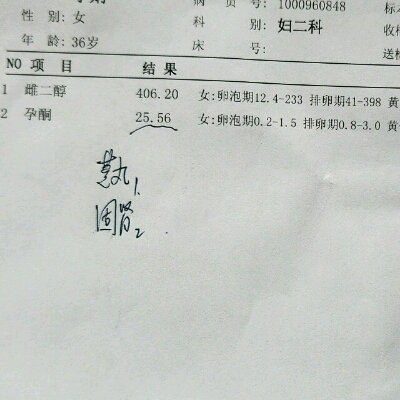 病 员 号: 1000960848 标本
性 别: 女 科 别: 妇二科 收样
年 龄: 36岁 床 号: 送检
NO 项 目 结 果
1 雌二醇 406.20 女:卵泡期12.4-233 排卵期41-398 黄
2 孕酮 25.56 女:卵泡期0.2-1.5 排卵期0.8-3.0 黄
1
固肾2